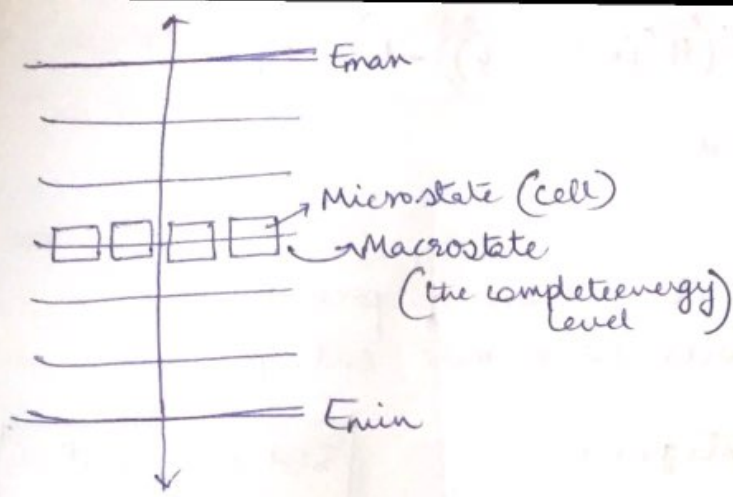 Eman
Microstate (cell)
Macrostate
(the completeenergy)
level
Emin